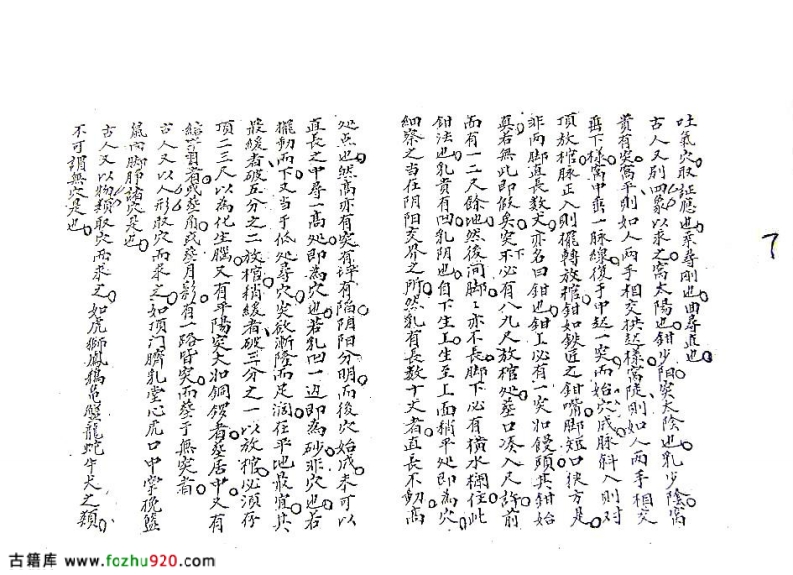 吐氣穴取証應也柔尋剛也曲尋直也
古人又別四象以求之窩太陽也鉗少阳突太陰也乳少陰窩
貴有突窩平則如人兩手相交拱起樣窩陡則如人兩手相交
垂下樣窩中垂一脉緩復于中起一突而始穴成脉斜入則对
頂放棺脉正入則擺轉放棺鉗如鉄匠之鉗嘴脚短口狭方是
非两脚直長数丈亦名曰鉗也鉗上必有一突如饅頭其鉗始
真若無此即假矣突下不必有八九尺放棺处葬口凑入尺許前
面有一二尺餘地然後两脚脚亦不長脚下必有横水欄住此
鉗法也乳貴有凹乳阴也自下生上生至上面稍平处即為穴
細察之当在阴阳交界之所然乳有長数十丈者直長不動高
处点也然高亦有突有泙有陷阴阳分明而後穴始成未可以
直長之中尋一高处即為穴也若乳凹一边即為砂非穴也若
擺動而下又当于低处尋穴突欲渐隆而足濶在平地最宜其
最緩者破五分之二放棺稍緩者破三分之一以放棺必须存
頂二三尺以為化生腦又有平陽突大如銅鑼者葬居中又有
結
者或葬角或葬月影有一路皆突而葬于無突者
古人又以人形取穴而求之如頂门臍乳堂心虎口中掌腕盤
鼠肉脚腓諸穴是也
古人又以物類取穴而求之如虎獅鳳鶴龟盤龍蛇牛犬之類
不可謂無穴是也
7
古籍库 www.fozhu920.com